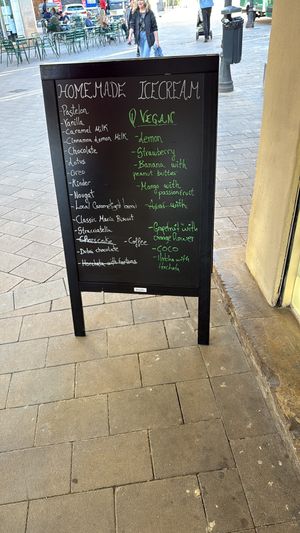 HOMEMADE ICECREAM
Pastelon
-Vanilla
-Caramel Milk
-Cinnamon Lemon Milk
-Chocolate
-Lotus
-Oreo
-Kinder
-Nougat
-Local
-Classic Maria Biscuit
-Stracciatella
-Cheesecake
-Coffee
-Dubai chocolate
-Horchata with fartons
VEGAN
-Lemon
-Strawberry
-Banana with
peanut butter
-Mango with
passionfruit
-Açai with
-Grapefruit with
orange flower
-COCO
-Matcha with
Horchata